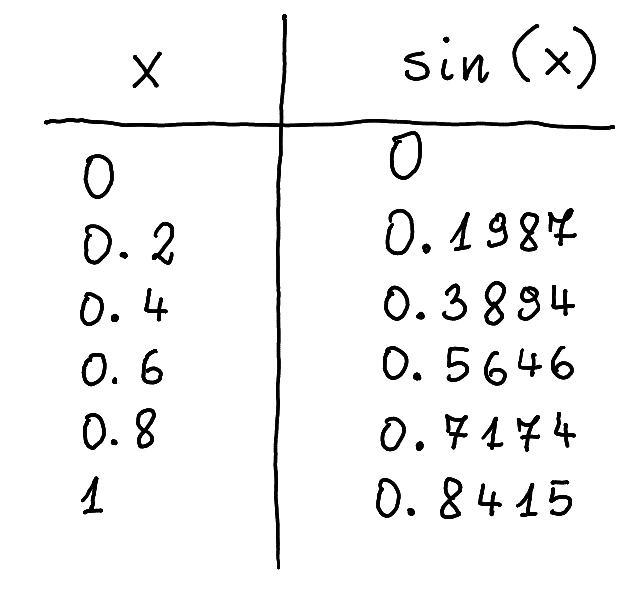 x sin (x)
0 0
0.2 0.1987
0.4 0.3894
0.6 0.5646
0.8 0.7174
1 0.8415